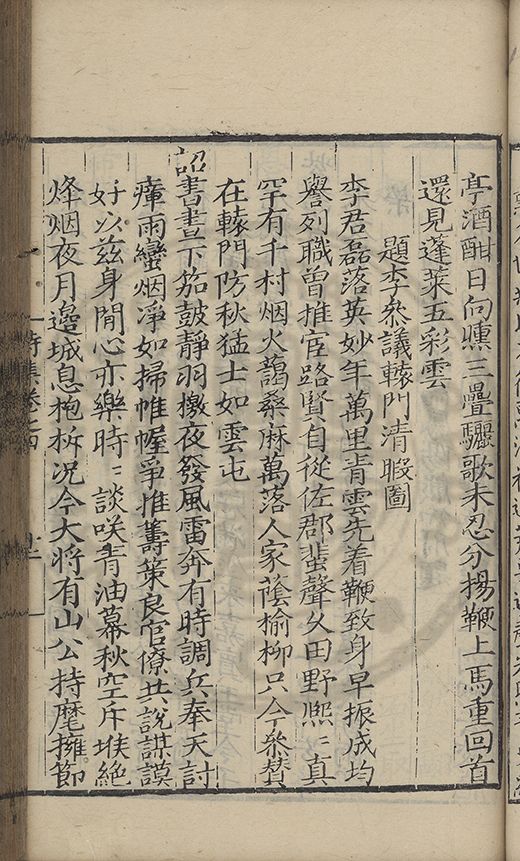 亭酒酣日向曛三疊驪歌未忍分揚鞭上馬重回首
還見蓬萊五彩雲
題李叅議轅門清暇圖
李君磊落英妙年萬里青雲先着鞭致身早振成均
譽列職曾推宦路賢自從佐郡蜚聲久田野熙〻真
罕有千村烟火藹桑麻萬落人家蔭榆柳只今叅贊
在轅門防秋猛士如雲屯
詔書晝下笳鼓靜羽檄夜發風雷奔有時調兵奉天討
瘴雨蠻烟淨如掃帷幄爭推籌策良官僚共說謀謨
好以兹身閒心亦樂時〻談咲青油幕秋空斥堠絕
烽烟夜月邊城息枹柝况今大將有山公持麾擁節
詩集卷之四